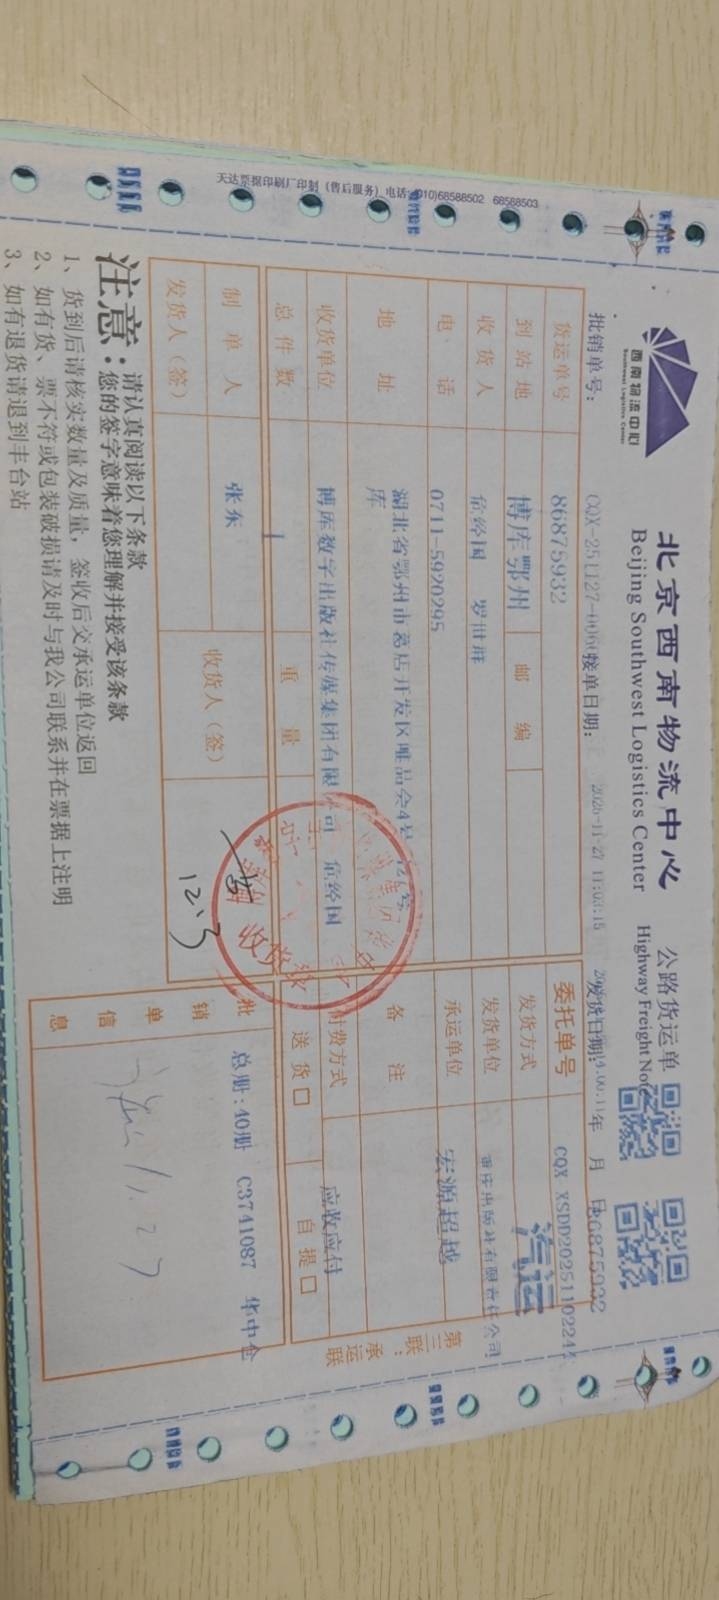 天达票据印刷厂印刷（售后服务）电话：(010)68588502 68588503
西南物流中心
Southwest Logistics Center
北京西南物流中心 公路货运单
Beijing Southwest Logistics Center Highway Freight Note
批销单号： CQX-251127-0060 接单日期： 2025-11-27 17:03:15 发货日期： 年 月 日 86875932
货运单号 86875932 委托单号 CQX XSDD2025110224
到站地 博库鄂州 邮编 发货方式 汽运
收货人 危经国 罗世祥 发货单位 重庆出版社有限责任公司
电话 0711-5920295 承运单位 宏源超越
地址 湖北省鄂州市葛店开发区唯品会4号
库 备注
收货单位 博库数字出版社传媒集团有限公司 危经国 付费方式 应收应付
总件数 1 重量 送货□ 自提□
制单人 张东 收货人（签） 12.3
发货人（签）
批销单信息 总册:40册 C3741087 华中仓
收货
第三联：承运联
注意：请认真阅读以下条款
您的签字意味着您理解并接受该条款
1、货到后请核实数量及质量，签收后交承运单位返回
2、如有货、票不符或包装破损请及时与我公司联系并在票据上注明
3、如有退货请退到丰台站